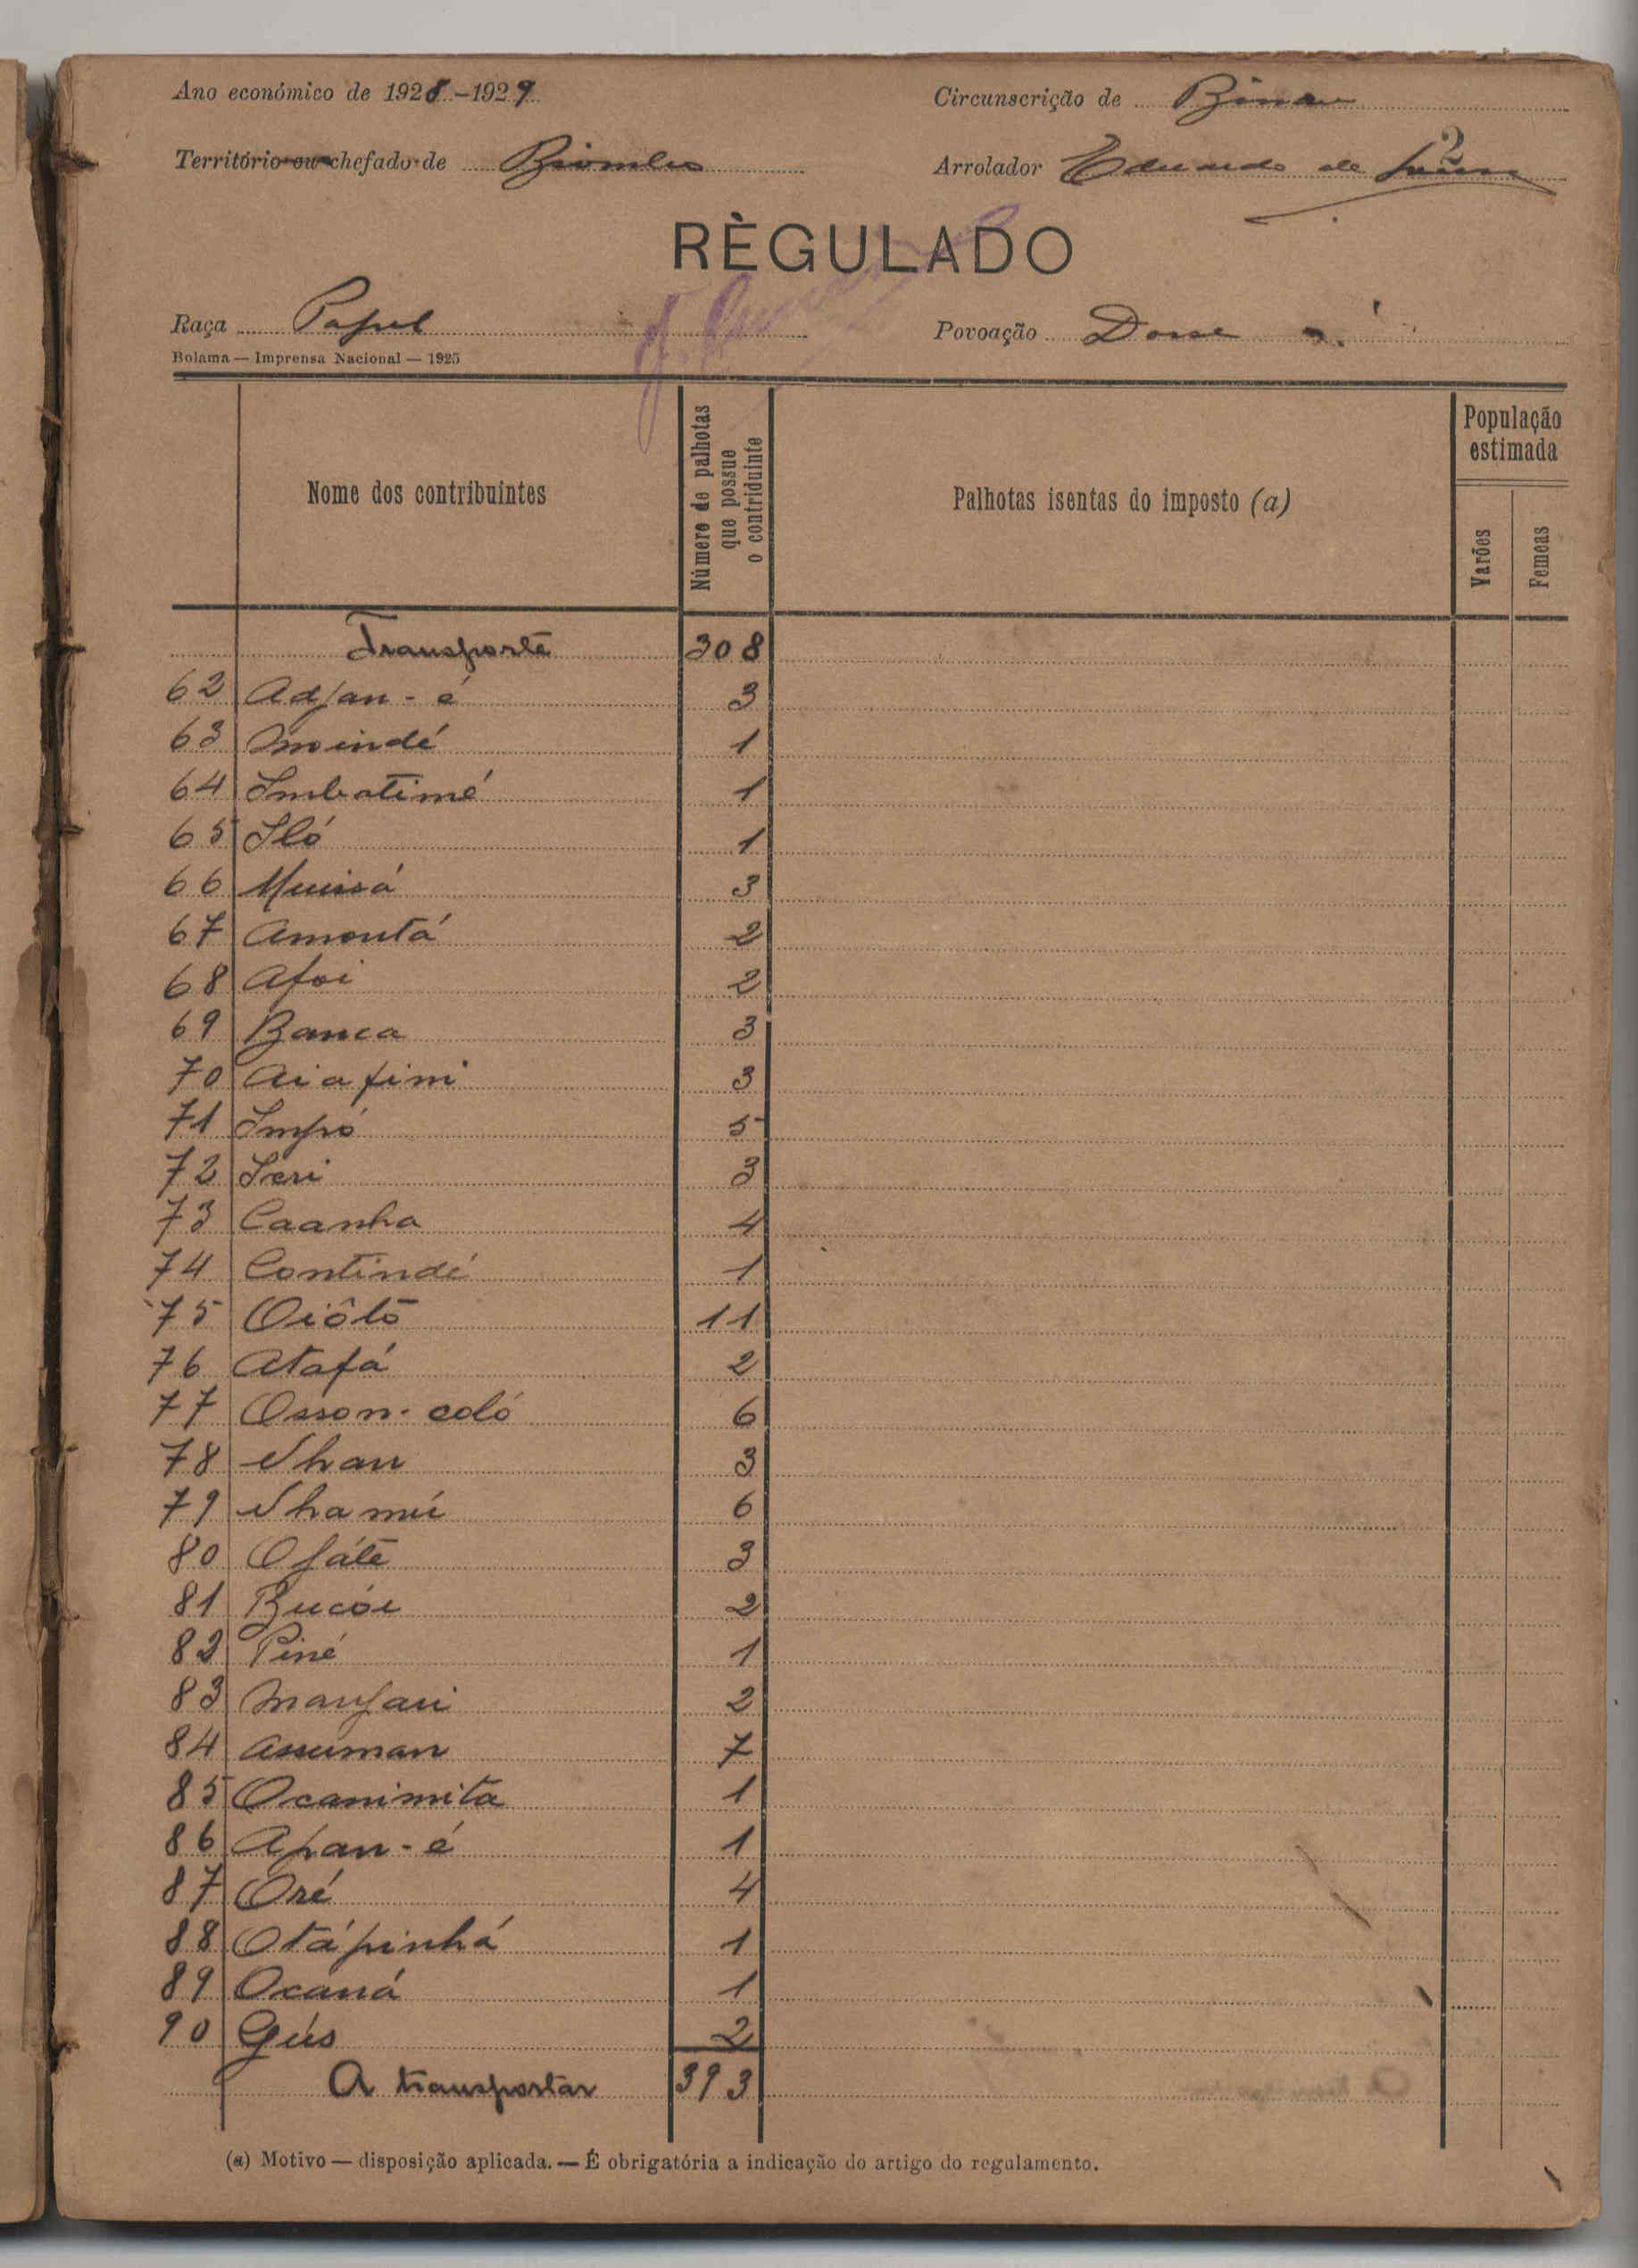 Ano económico de 1928-1929 Circunscrição de
Território ou chefado de Biombo Arrolador Eduardo de
2
RÈGULADO
Raça Papel Povoação Dorse
Bolama — Imprensa Nacional — 1925
Nome dos contribuintes Número de palhotas que possue o contriduinte Palhotas isentas do imposto (a) População estimada Varões Femeas
Transporte 308
62 Adjan-é 3
63 Moindé 1
64 Imbatimé 1
65 Iló 1
66 Muissá 3
67 Amontá 2
68 Afoi 2
69 Banca 3
70 Aiafini 3
71 Impó 5
72 Seri 3
73 Caanha 4
74 Contindé 1
75 Oiôtó 11
76 Atafá 2
77 Osson-coló 6
78 Nhan 3
79 Nhamú 6
80 Ofáté 3
81 Bucói 2
82 Piné 1
83 Manjari 2
84 Assuman 7
85 Ocanimita 1
86 Apan-é 1
87 Oré 4
88 Otápinhá 1
89 Ocaná 1
90 Gús 2
A transportar 393
(a) Motivo — disposição aplicada. — É obrigatória a indicação do artigo do regulamento.